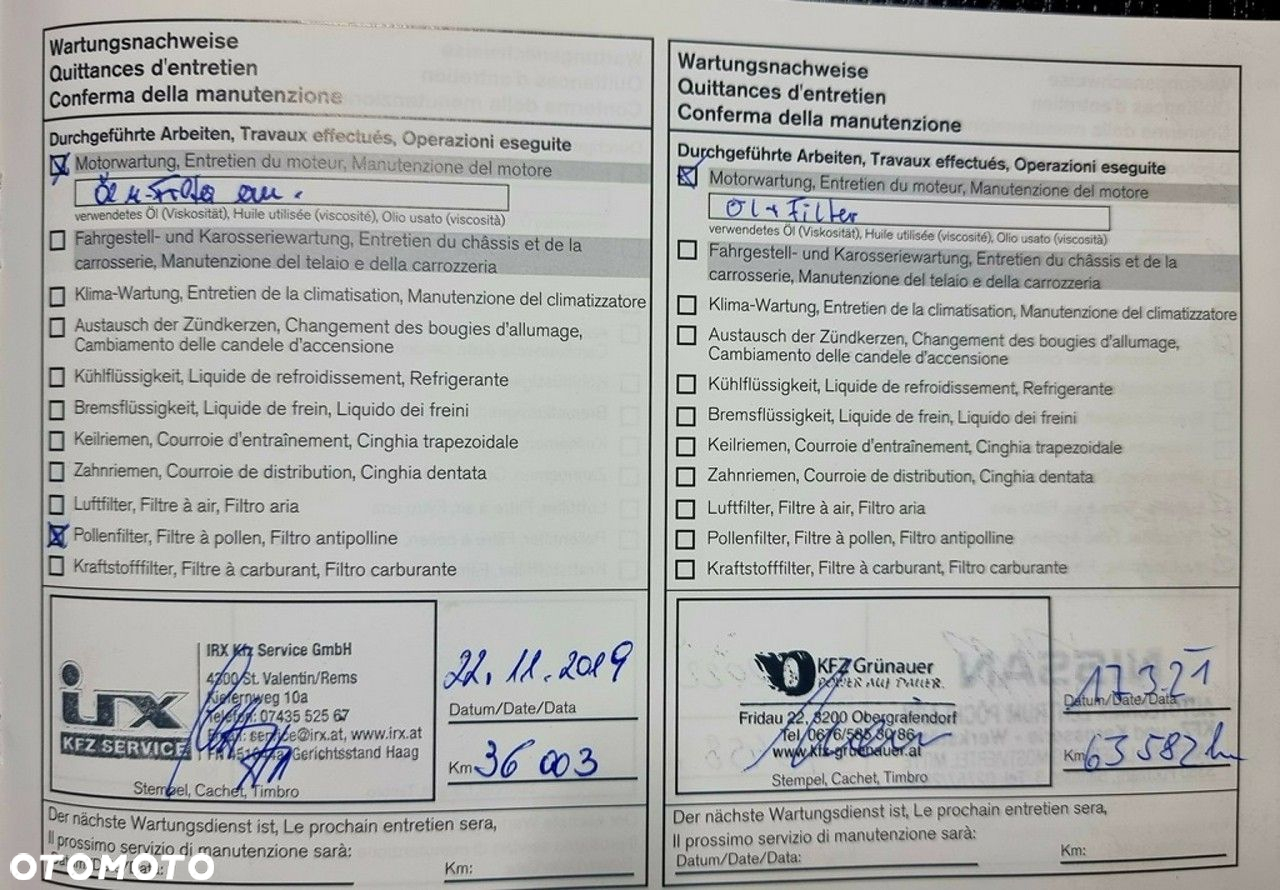 Wartungsnachweise
Quittances d'entretien
Conferma della manutenzione
Durchgeführte Arbeiten, Travaux effectués, Operazioni eseguite
Motorwartung, Entretien du moteur, Manutenzione del motore
Öl u-Filter
verwendetes Öl (Viskosität), Huile utilisée (viscosité), Olio usato (viscosità)
Fahrgestell- und Karosseriewartung, Entretien du châssis et de la
carrosserie, Manutenzione del telaio e della carrozzeria
Klima-Wartung, Entretien de la climatisation, Manutenzione del climatizzatore
Austausch der Zündkerzen, Changement des bougies d'allumage,
Cambiamento delle candele d'accensione
Kühlflüssigkeit, Liquide de refroidissement, Refrigerante
Bremsflüssigkeit, Liquide de frein, Liquido dei freini
Keilriemen, Courroie d'entraînement, Cinghia trapezoidale
Zahnriemen, Courroie de distribution, Cinghia dentata
Luftfilter, Filtre à air, Filtro aria
Pollenfilter, Filtre à pollen, Filtro antipolline
Kraftstofffilter, Filtre à carburant, Filtro carburante
irx
KFZ SERVICE
IRX Kfz Service GmbH
4300 St. Valentin/Rems
Kiefernweg 10a
Telefon: 07435 525 67
Email: service@irx.at, www.irx.at
Gerichtsstand Haag
Stempel, Cachet, Timbro
22.11.2019
Datum/Date/Data
Km 36 003
Der nächste Wartungsdienst ist, Le prochain entretien sera,
Il prossimo servizio di manutenzione sarà:
Datum/Date/Data:
Km:
Wartungsnachweise
Quittances d'entretien
Conferma della manutenzione
Durchgeführte Arbeiten, Travaux effectués, Operazioni eseguite
Motorwartung, Entretien du moteur, Manutenzione del motore
Öl + Filter
verwendetes Öl (Viskosität), Huile utilisée (viscosité), Olio usato (viscosità)
Fahrgestell- und Karosseriewartung, Entretien du châssis et de la
carrosserie, Manutenzione del telaio e della carrozzeria
Klima-Wartung, Entretien de la climatisation, Manutenzione del climatizzatore
Austausch der Zündkerzen, Changement des bougies d'allumage,
Cambiamento delle candele d'accensione
Kühlflüssigkeit, Liquide de refroidissement, Refrigerante
Bremsflüssigkeit, Liquide de frein, Liquido dei freini
Keilriemen, Courroie d'entraînement, Cinghia trapezoidale
Zahnriemen, Courroie de distribution, Cinghia dentata
Luftfilter, Filtre à air, Filtro aria
Pollenfilter, Filtre à pollen, Filtro antipolline
Kraftstofffilter, Filtre à carburant, Filtro carburante
KFZ Grünauer
POWER AUF DAUER.
Fridau 22, 3200 Obergrafendorf
Tel. 0676/585 30 86
www.kfz-gruenauer.at
Stempel, Cachet, Timbro
17.3.21
Datum/Date/Data
Km 63582 km
Der nächste Wartungsdienst ist, Le prochain entretien sera,
Il prossimo servizio di manutenzione sarà:
Datum/Date/Data:
Km:
OTOMOTO